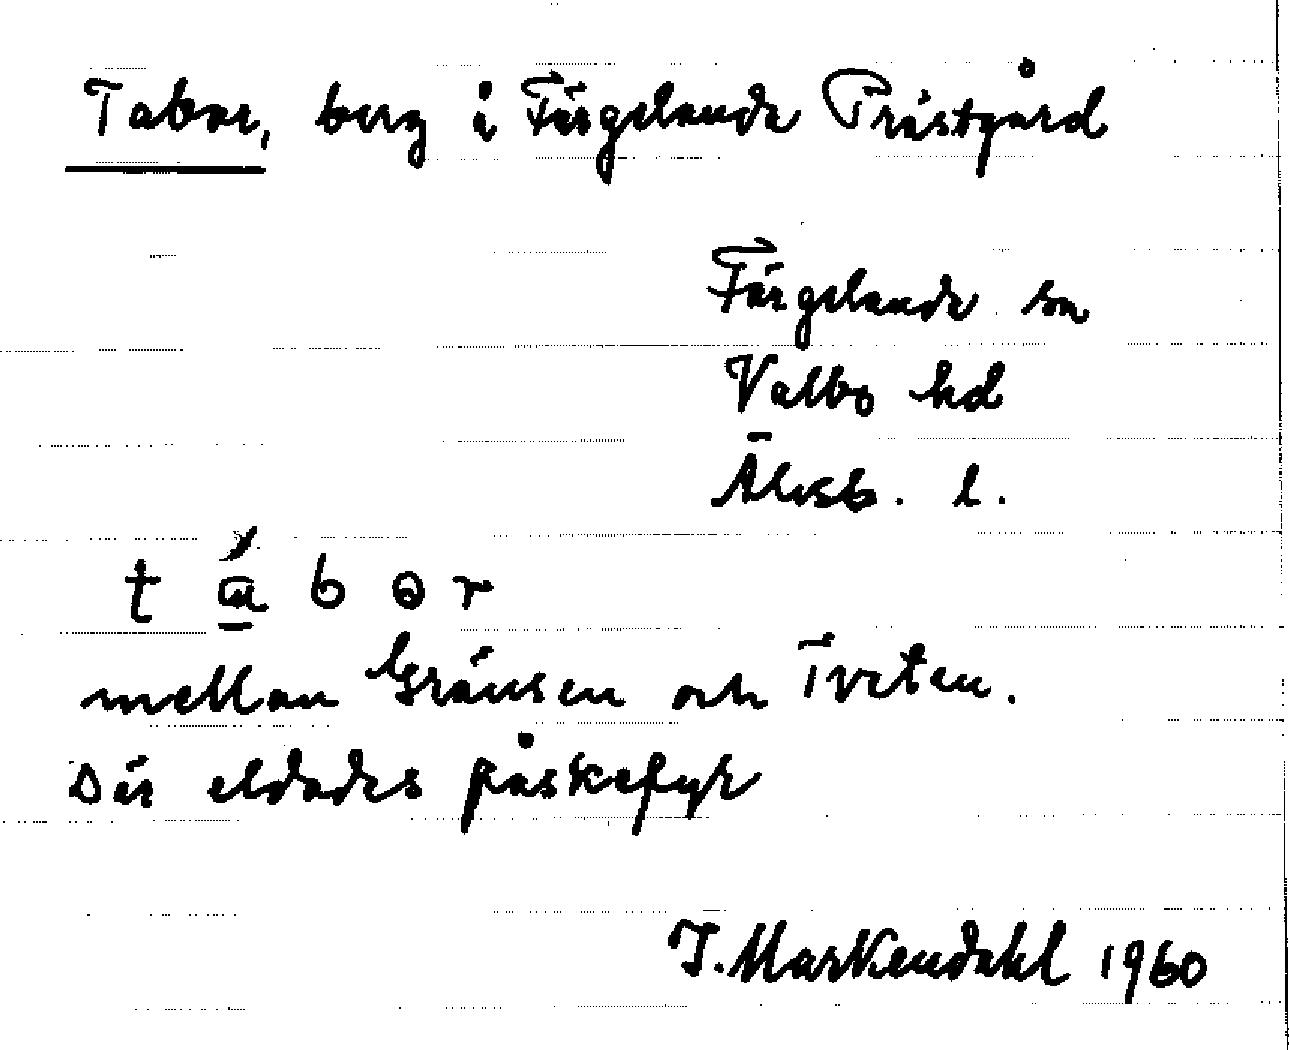 Tabor, berg i Färgelanda Prästgård
Färgelanda sn
Valbo hd
Älvsb. l.
t á̱ b ɵ r
mellan Gränsen och Tveten.
Där eldades påskefyr
I. Markendahl 1960